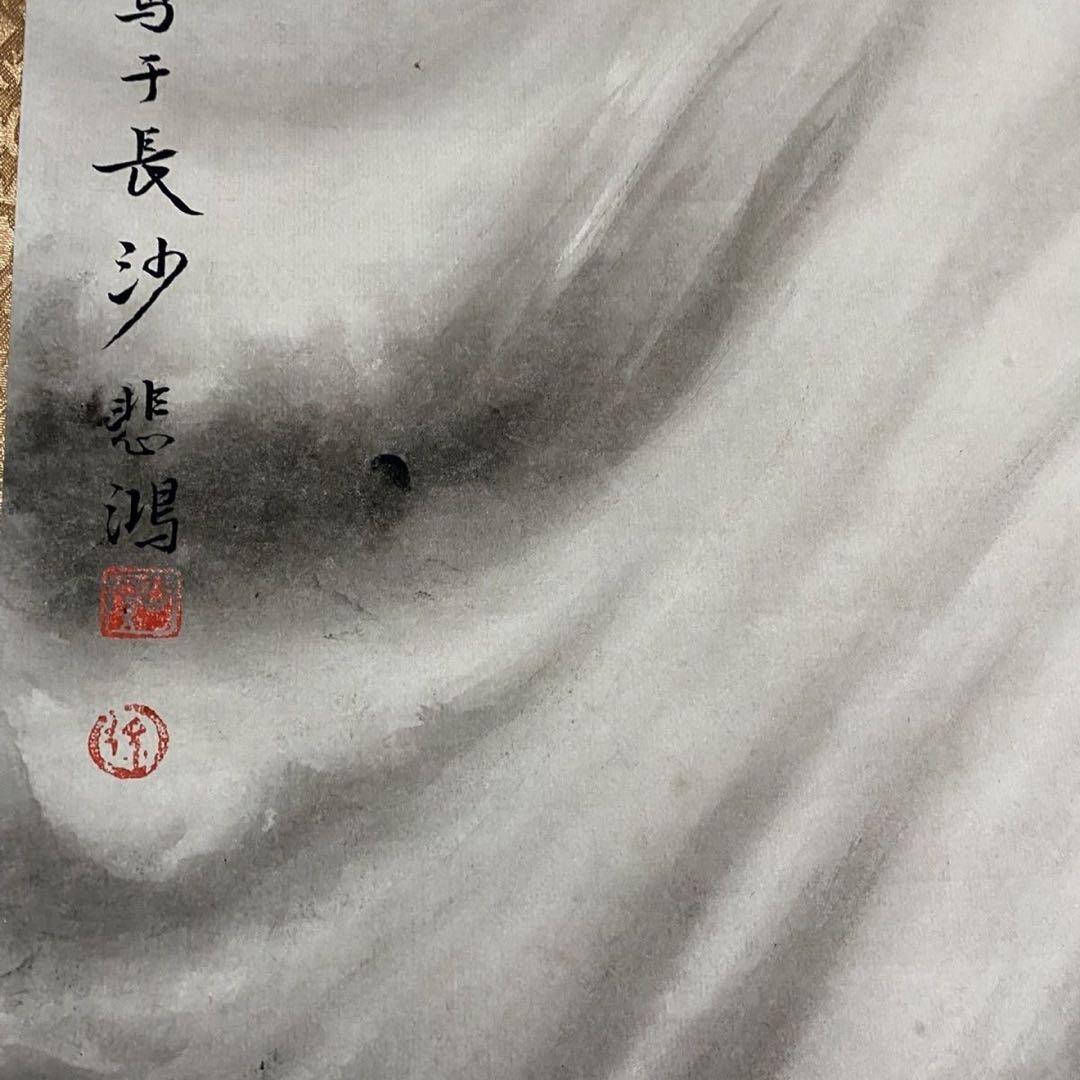 写于長沙悲鴻